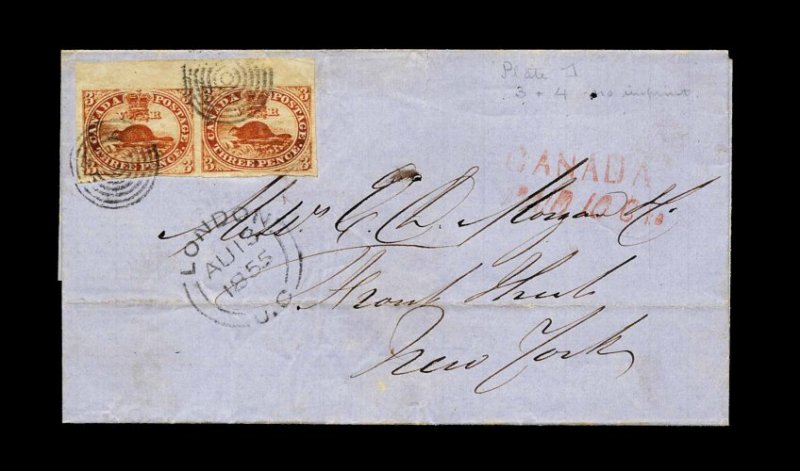 CANADA POSTAGE.
V R
3 3
THREE PENCE.
CANADA POSTAGE.
V R
3 3
THREE PENCE.
Plate I
3 + 4 no imprint
CANADA
10 Cts.
LONDON
AU 15
1855
U.C
Messrs E. D. Morgan & Co
Front Street
New York